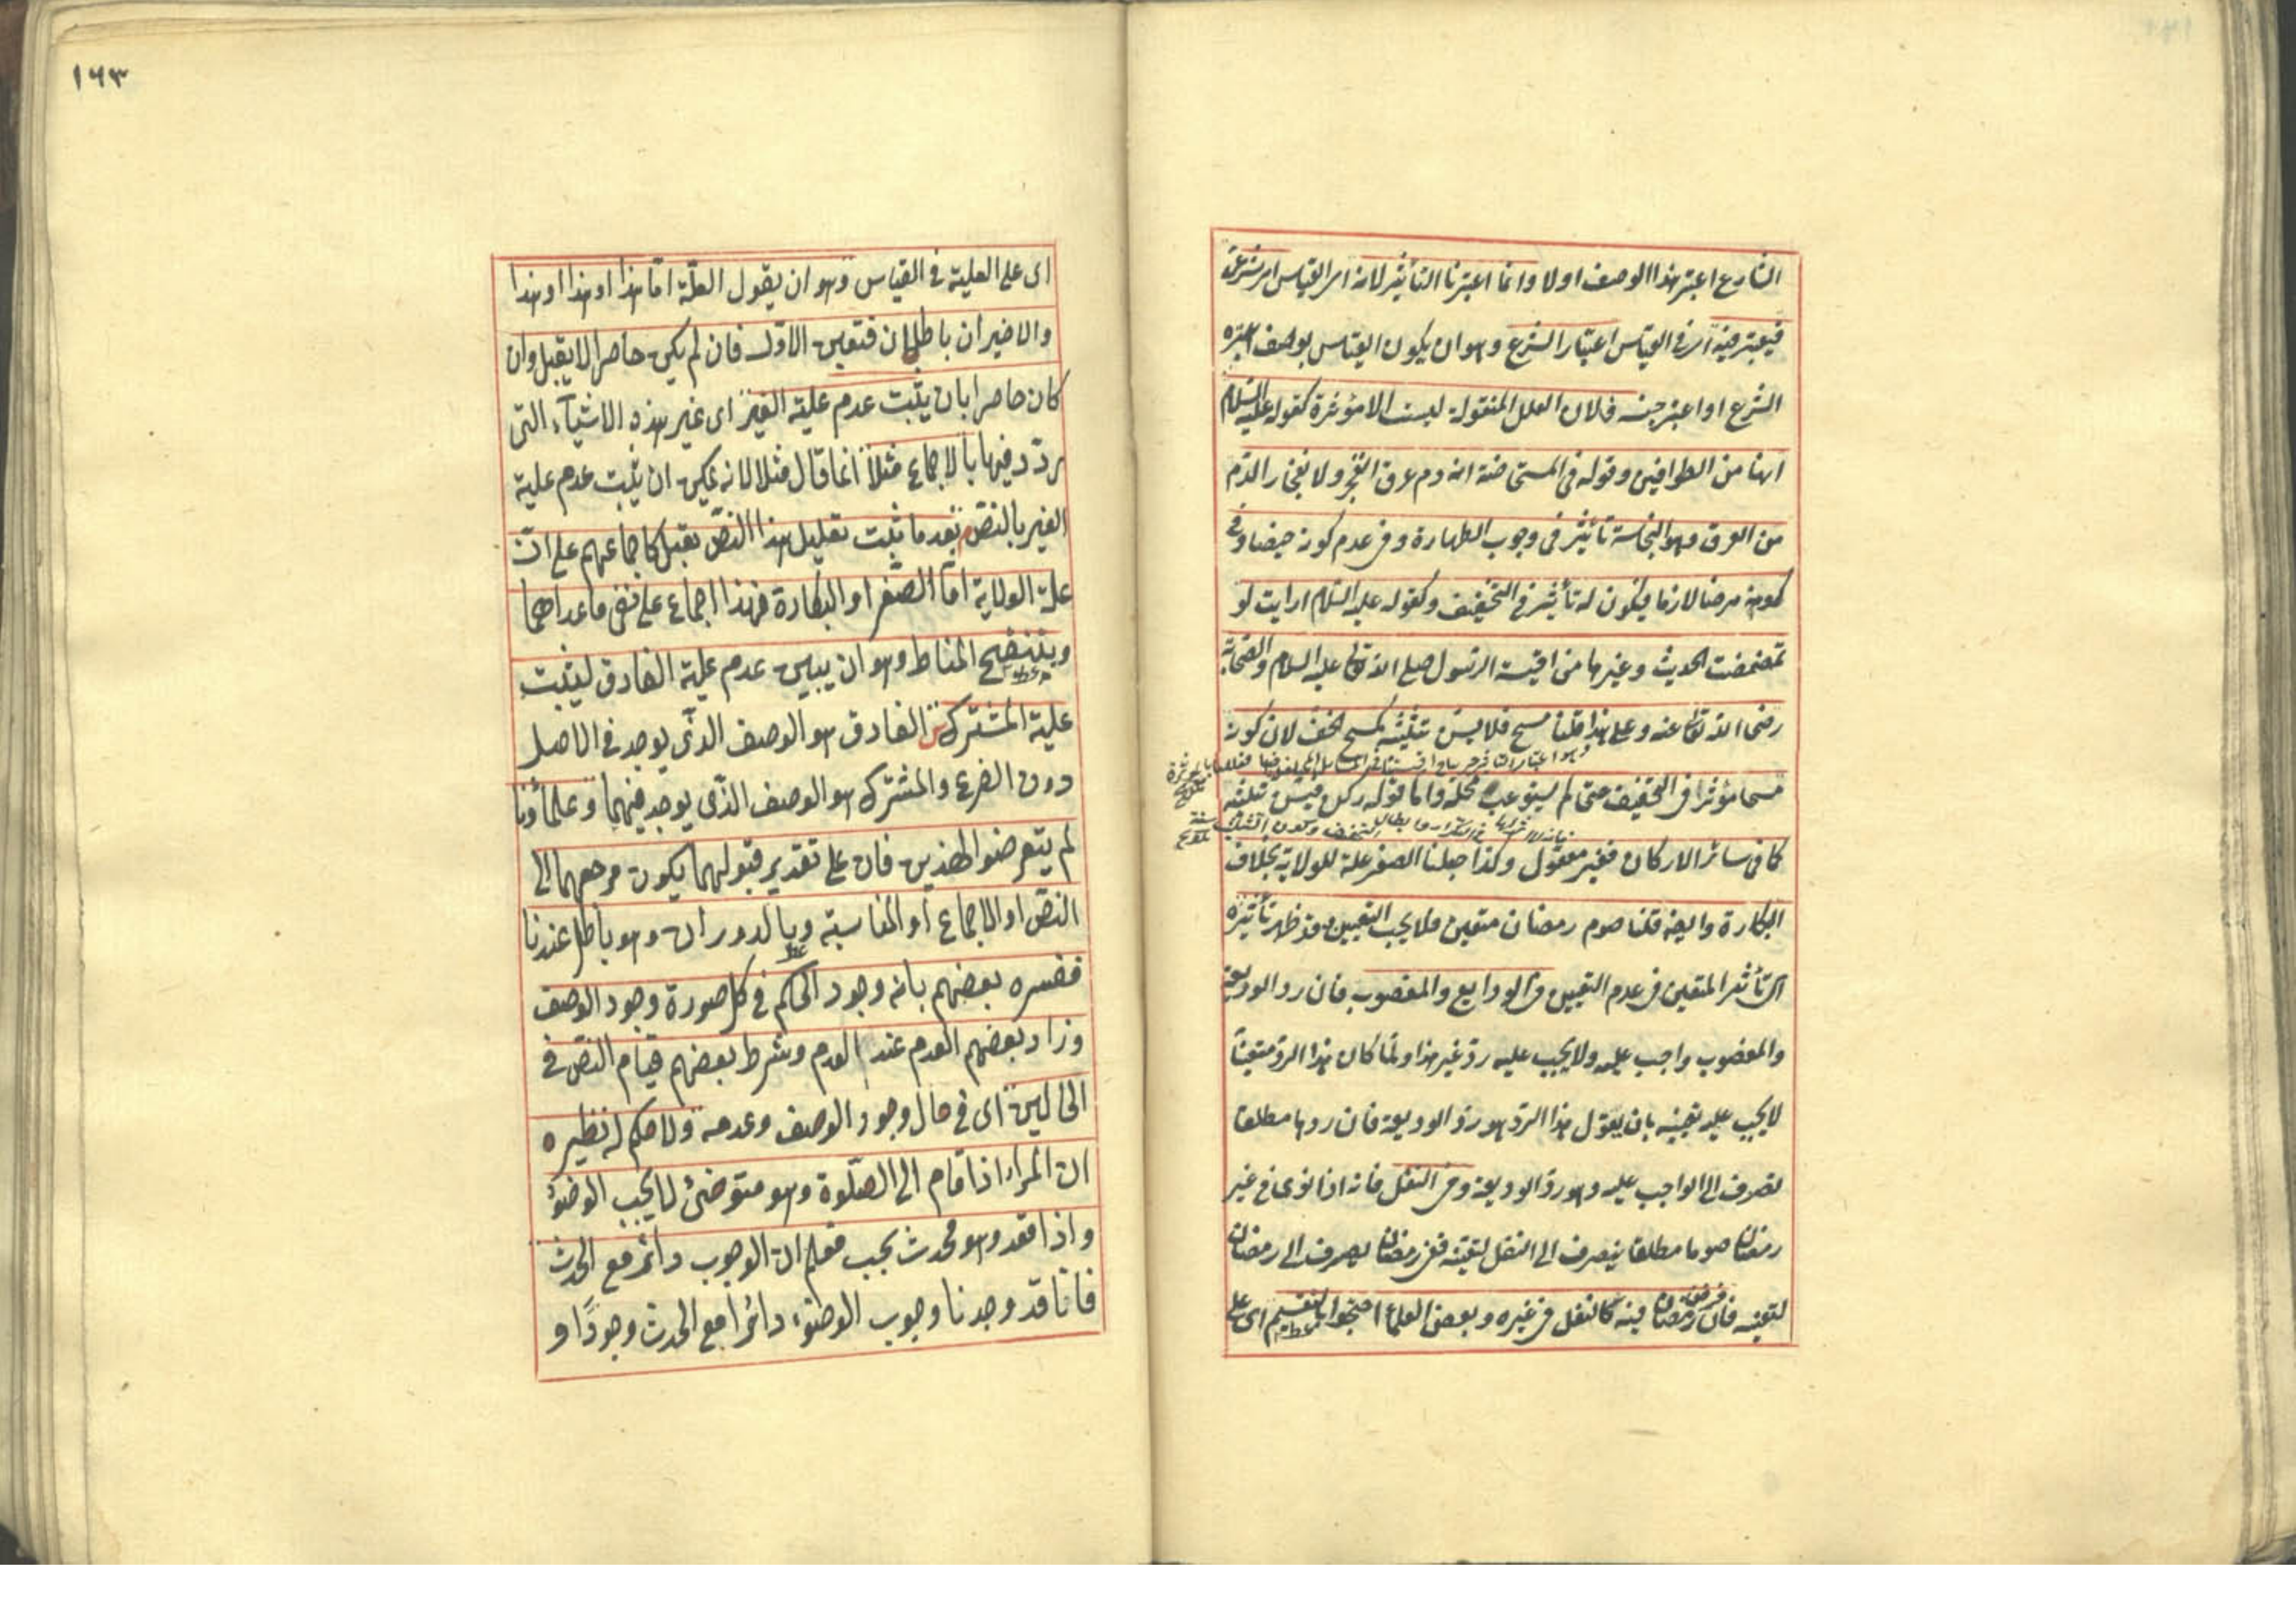 الشارع اعتبر هذا الوصف اولا وانما اعتبرنا التأثير لانه امر القياس امر شرعى
فيعتبر فيه اى فى القياس اعتبار الشرع وهو ان يكون القياس بوصف اعتبره
الشرع او اعتبر جنسه ولان العلل المنقولة ليست الا مؤثرة كقوله عليه السلام
انها من الطوافين وقوله فى المستحاضة انه دم عرق انفجر ولانفجار الدم
من العرق وهو النجاسة تأثير فى وجوب الطهارة وفى عدم كونه حيضا وفى
كونه مرضا لازما فيكون له تأثير فى التخفيف وكقوله عليه السلام ارايت لو
تمضمضت الحديث وغيرها من اقيسة الرسول صلى الله تعالى عليه السلام والصحابة
رضى الله تعالى عنه وعلى هذا قلنا مسح فلا يسن تثليثه كمسح الخف لان كونه
مسحا مؤثر فى التخفيف حتى لم يستوعب محله واما قوله ركن فيسن تثليثه
كما فى سائر الاركان فغير معقول وكذا جعلنا الصغر علة للولاية بخلاف
البكارة وايضا قلنا صوم رمضان متعين فلا يجب التعيين وقد ظهر تأثيره
اى تأثير المتعين فى عدم التعيين فى الودايع والمغصوب فان رد الوديعة
والمغصوب واجب عليه ولا يجب عليه رد غير هذا ولما كان هذا الرد متعينا
لا يجب عليه تعيينه بان يقول هذا الرد هو رد الوديعة فان ردها مطلقا
لصرف الى الواجب عليه وهو رد الوديعة وفى النفل فانه اذا نوى فى غير
رمضان صوما مطلقا ينصرف الى النفل لتعينه ففى رمضان يصرف الى رمضان
لتعينه فان فرض رمضان فيه كالنفل فى غيره وبعض العلماء احتجوا بالتقسيم اى على
١٦٣
اى على العلية فى القياس وهو ان يقول العلة اما هذا او هذا او هذا
والاخيران باطلان فتعين الاول فان لم يكن حاصرا لا يقبل وان
كان حاصرا بان يثبت عدم علية الغير اى غير هذه الاشياء التى
ردد فيها بالاجماع مثلا انما قال مثلا لانه يمكن ان يثبت عدم علية
الغير بالنص بعد ما ثبت تعليل هذا النص يقبل كاجماعهم على ان
علة الولاية اما الصغر او البكارة فهذا اجماع على نفى ما عداهما
وبتنقيح المناط وهو ان يبين عدم علية الفارق ليثبت
علية المشترك الفارق هو الوصف الذى يوجد فى الاصل
دون الفرع والمشترك هو الوصف الذى يوجد فيهما وعلماؤنا
لم يتعرضوا لهذين فان على تقدير قبولهما يكون مرجعهما الى
النص او الاجماع او المناسبة وبالدوران وهو باطل عندنا
ففسره بعضهم بانه وجود الحكم فى كل صورة وجود الوصف
وزاد بعضهم العدم عند العدم وشرط بعضهم قيام النص فى
الحالين اى فى حال وجود الوصف وعدمه ولا حكم له نظيره
ان المرء اذا قام الى الصلوة وهو متوضئ لا يجب الوضوء
واذا قعد وهو محدث يجب فعلم ان الوجوب دائر مع الحدث
فانا قد وجدنا وجوب الوضوء دائرا مع الحدث وجودًا و